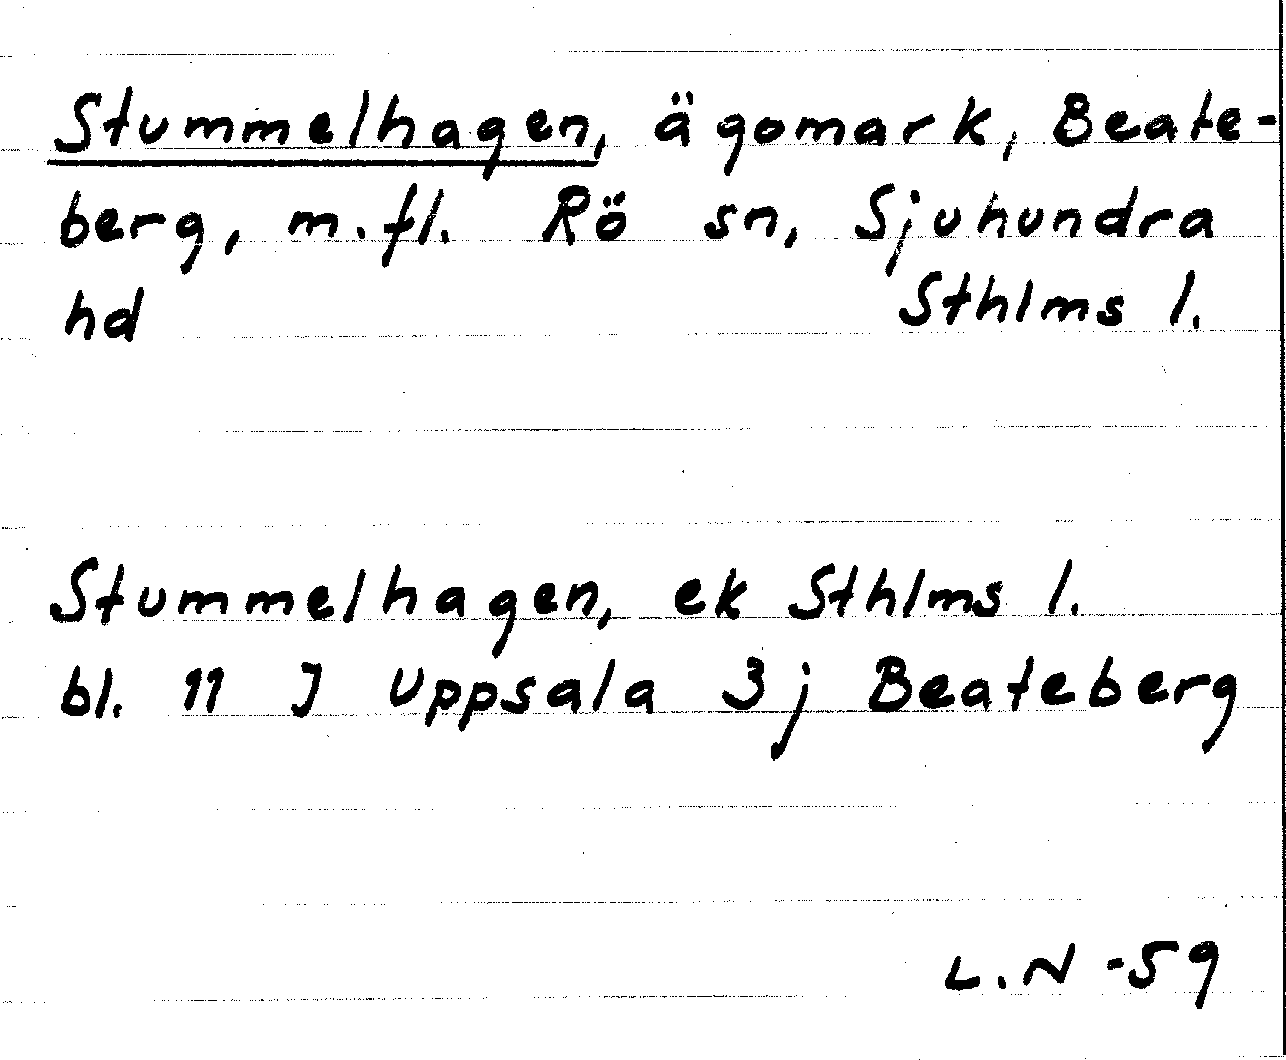 Stummelhagen, ägomark, Beate-
berg, m.fl. Rö sn, Sjuhundra
hd Sthlms l.
Stummelhagen, ek Sthlms l.
bl. 11 J Uppsala 3j Beateberg
L.N -59